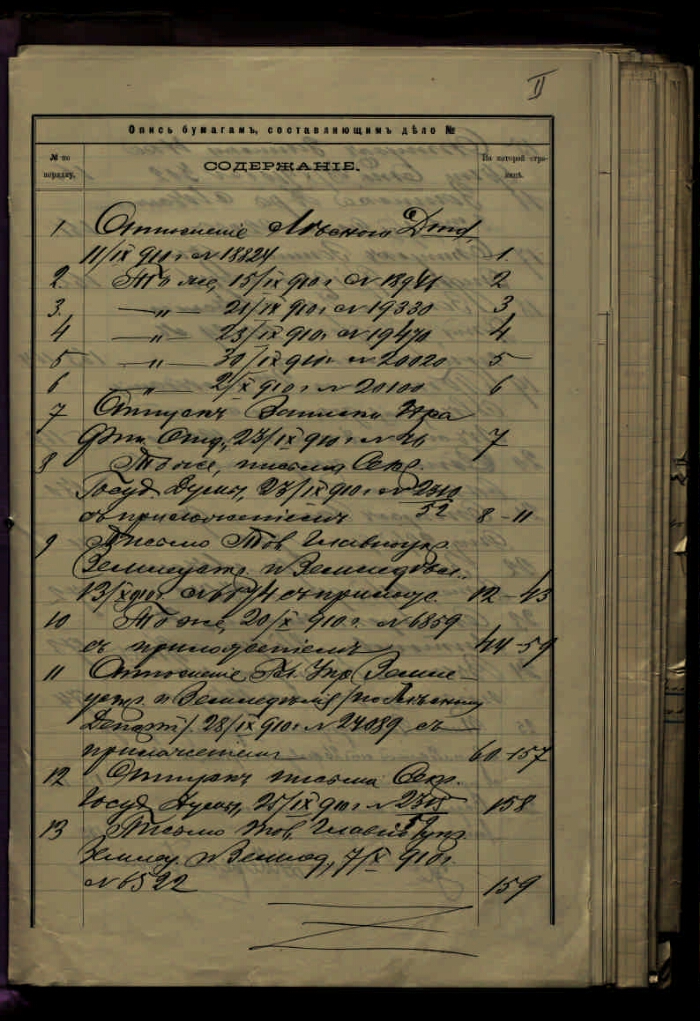 II
Опись бумагамъ, составляющимъ дѣло №
№ по порядку.
СОДЕРЖАНІЕ.
По которой страницѣ.
1 Отношеніе Лѣсного Деп.
11/IX 910 г. № 18824 1
2. То же, 15/IX 910 г. № 18941 2
3. —„— 21/IX 910 г. № 19330 3
4 —„— 23/IX 910 г. № 19470 4.
5 —„— 30/IX 910 г. № 20020 5
6 —„— 2/X 910 г. № 20100 6
7 Отпускъ Записки
Отд., 23/IX 910 г. № 26 7
8 То же, письма Секр.
Госуд. Думы, 23/IX 910 г. № 2310/52
съ приложеніемъ 8-11
9 Письмо Тов. Главноупр.
Землеустр. и Земледѣл.
13/IX 910 г. № съ прилож. 12-43
10 То же, 20/X 910 г. № 6859
съ приложеніемъ 44-59
11 Отношеніе Гл. Упр. Земле-
устр. и Земледѣлія /по Лѣсному
Департ/. 28/IX 910 г. № съ
приложеніемъ 60-157
12 Отпускъ письма Секр.
Госуд. Думы, 25/IX 910 г. № 158
13 Письмо Тов. Главноупр.
Землеу. и Землед., 7/X 910 г.
№ 6522 159